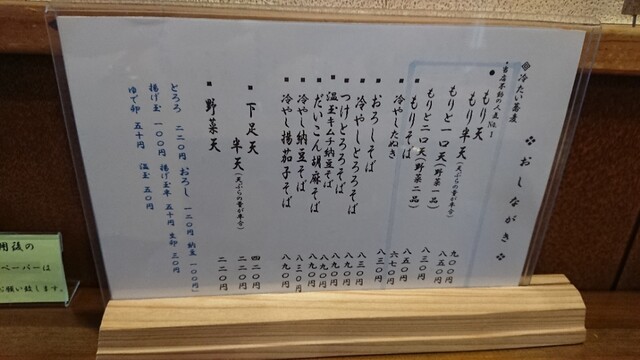 おしながき
冷たい蕎麦
当店不動の人気No.1
もり天 九〇〇円
もり半天(天ぷらの量が半分) 八五〇円
もりと一口天(野菜一品) 八三〇円
もりと二口天(野菜二品) 八五〇円
もりそば 六七〇円
冷やしたぬき 八三〇円
おろしそば 八三〇円
冷やしとろろそば 八九〇円
つけとろろそば 八九〇円
温玉キムチ納豆そば 八九〇円
だいこん胡麻そば 八九〇円
冷やし納豆そば 八三〇円
冷やし揚茄子そば 八九〇円
下足天 四二〇円
半天(天ぷらの量が半分) 二二〇円
野菜天 二二〇円
とろろ 二二〇円 おろし 一二〇円 納豆 一〇〇円
揚げ玉 一〇〇円 揚げ玉半 五十円 生卵 五〇円
ゆで卵 五十円 温玉 五〇円
用後の
ペーパーは
お願い致します。